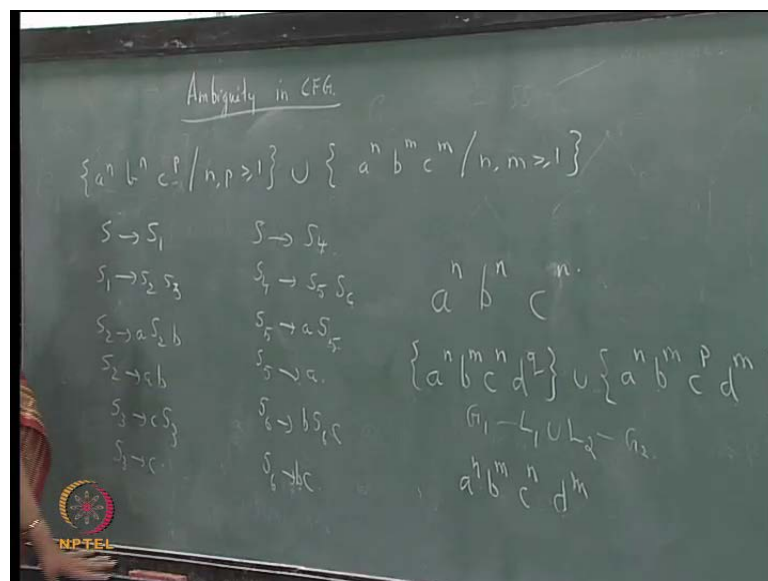 Ambiguity in CFG.
{aⁿ bⁿ cᵖ / n, p ≥ 1} ∪ {aⁿ bᵐ cᵐ / n, m ≥ 1}
S → S₁
S₁ → S₂ S₃
S₂ → a S₂ b
S₂ → ab
S₃ → c S₃
S₃ → c.
S → S₄.
S₄ → S₅ S₆
S₅ → a S₅.
S₅ → a.
S₆ → b S₆ c
S₆ → bc.
aⁿ bⁿ cⁿ.
{aⁿ bᵐ cⁿ d^q} ∪ {aⁿ bᵐ cᵖ dᵐ
G₁ – L₁ ∪ L₂ – G₂.
aⁿ bᵐ cⁿ dᵐ
NPTEL